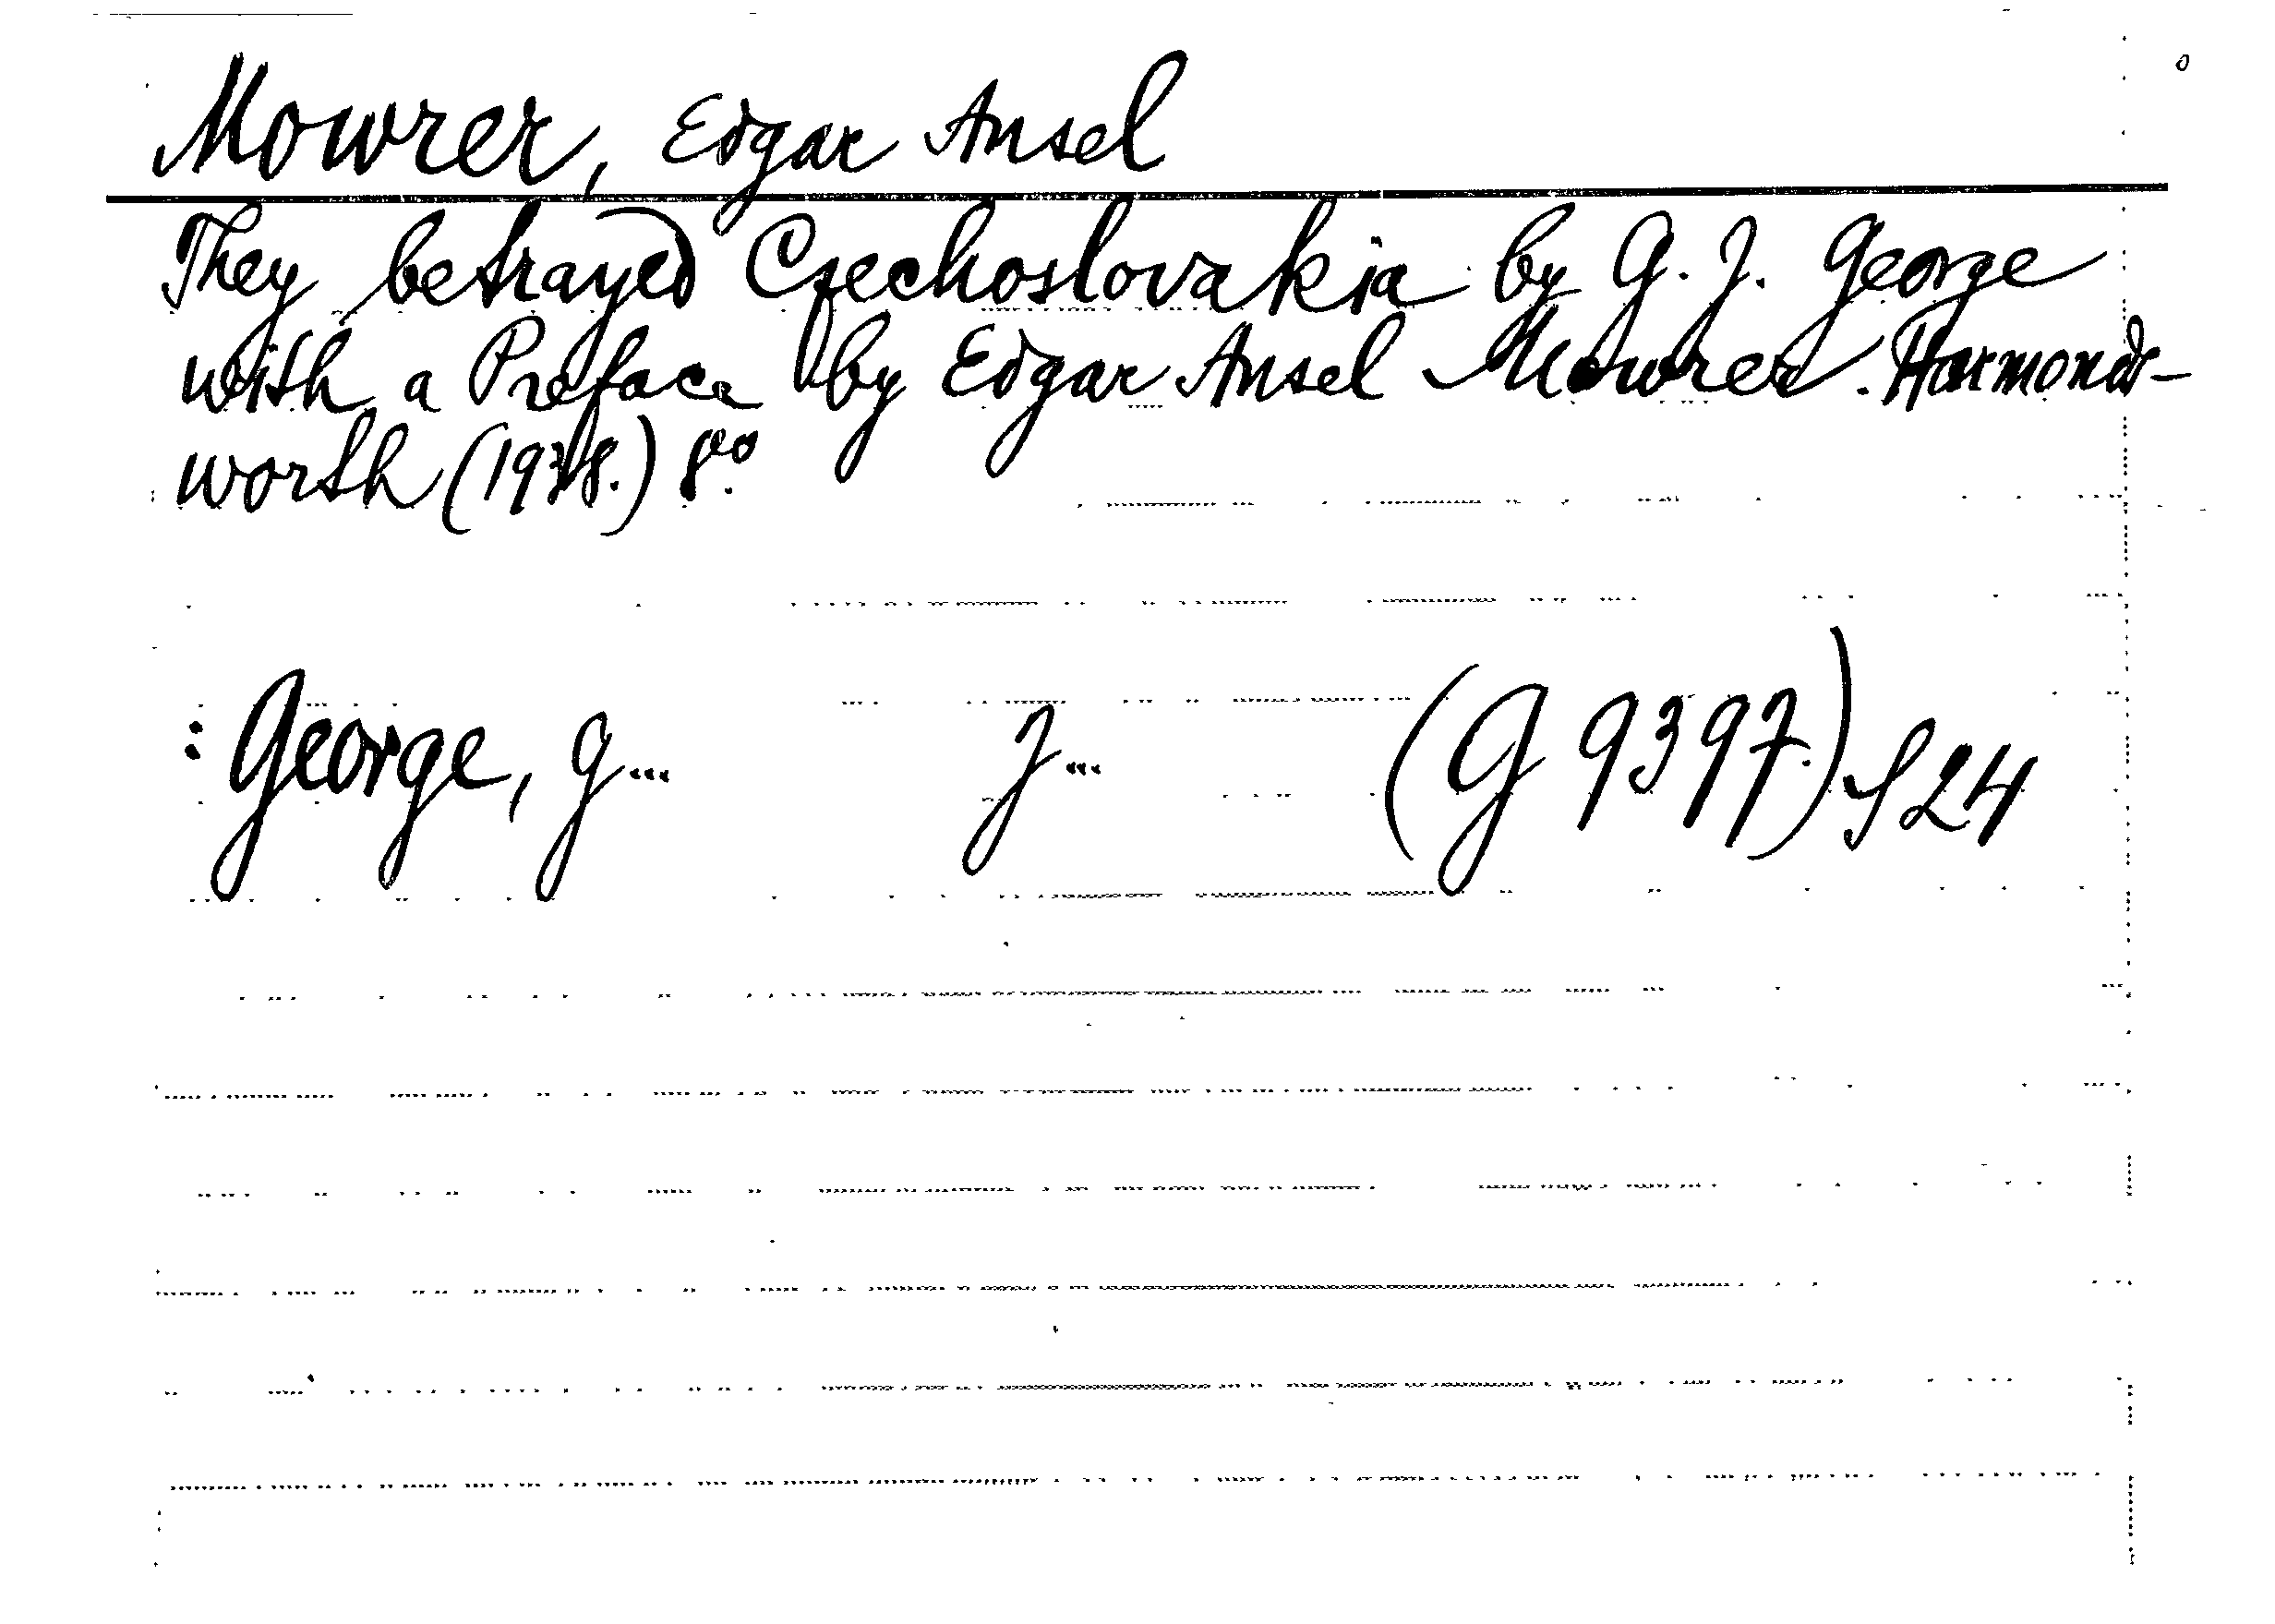 Mowrer, Edgar Ansel
They betrayed Czechoslovakia by G. J. George
with a Preface by Edgar Ansel Mowrer. Harmonds-
worth (1938.) 8vo.
: George, G... J... (G 9397.) S24